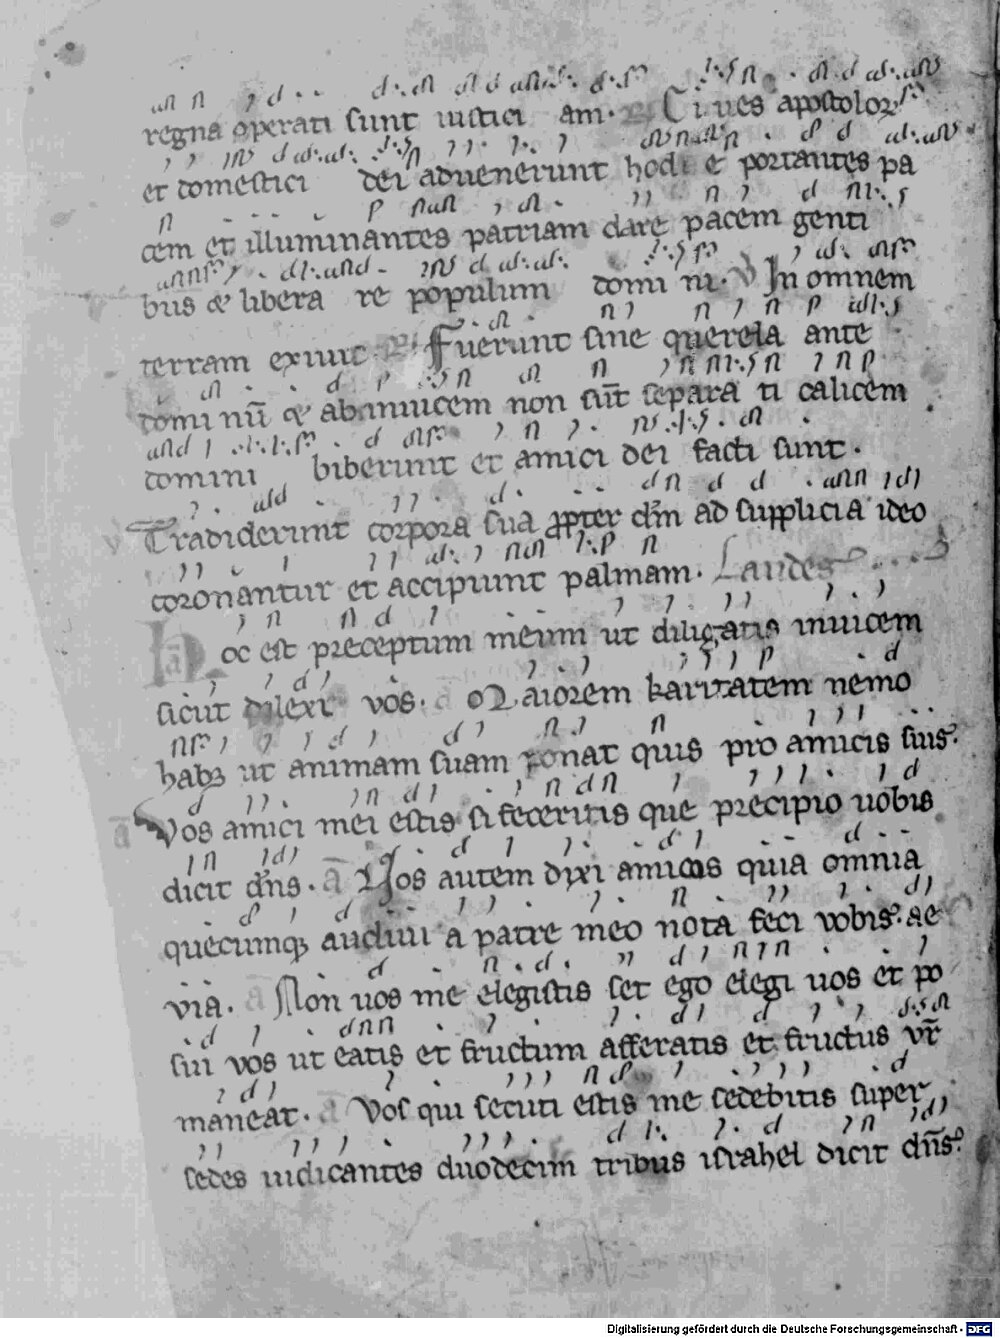 regna operati sunt iustici am. R Ci ues apostolorꝝ
et domestici dei aduenerunt hodi e portantes pa
cem et illuminantes patriam dare pacem genti
bus & libera re populum domi ni. V In omnem
terram exiuit. R Fuerunt sine querela ante
domi nū & abinuicem non sūt separa ti calicem
domini biberunt et amici dei facti sunt.
Tradiderunt corpora sua ꝓpter dm̄ ad supplicia ideo
coronantur et accipiunt palmam. Laudes
hoc est preceptum meum ut diligatis inuicem
sicut dilexi vos. a Maiorem karitatem nemo
habꝫ ut animam suam ponat quis pro amicis suis.
a Vos amici mei estis si feceritis que precipio uobis
dicit dn̄s. a Uos autem dixi amicos quia omnia
quecumqꝫ audiui a patre meo nota feci vobis. ae
via. a Non uos me elegistis set ego elegi uos et po
sui vos ut eatis et fructum afferatis et fructus vr̄
maneat. a Vos qui secuti estis me sedebitis super
sedes iudicantes duodecim tribus israhel dicit dn̄s.
Digitalisierung gefördert durch die Deutsche Forschungsgemeinschaft - DFG